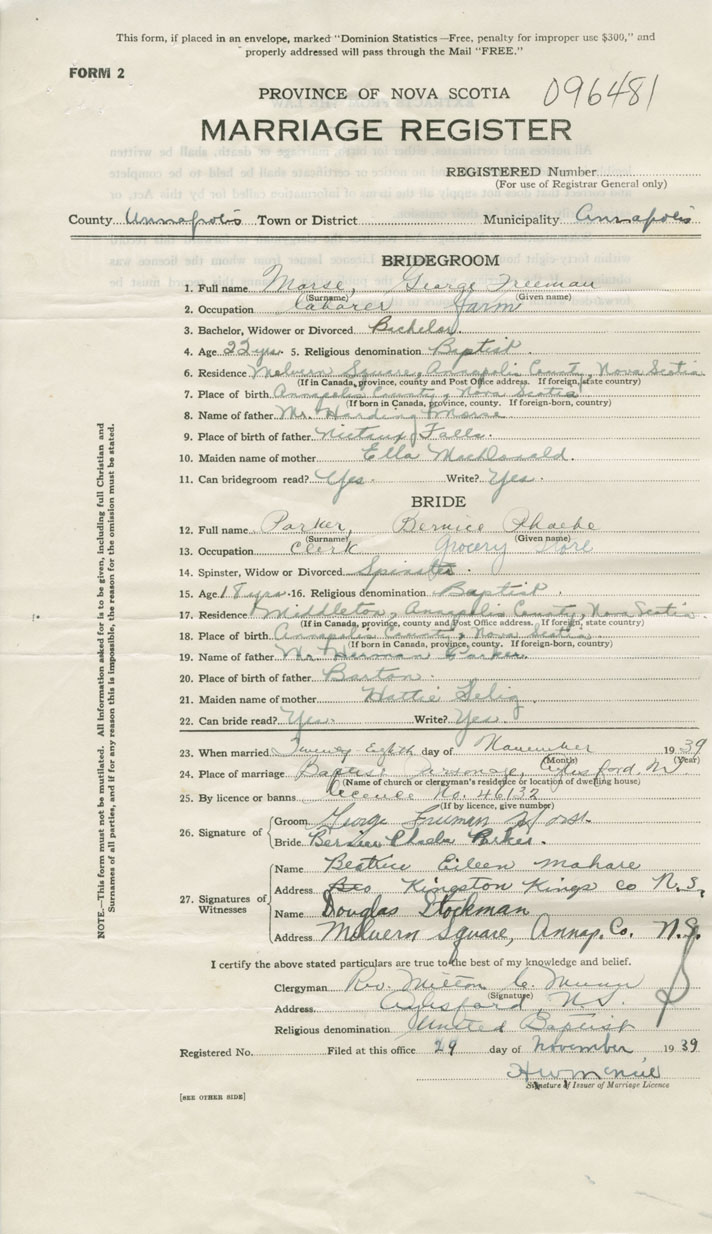 This form, if placed in an envelope, marked "Dominion Statistics—Free, penalty for improper use $300," and
properly addressed will pass through the Mail "FREE."
FORM 2
PROVINCE OF NOVA SCOTIA 096481
MARRIAGE REGISTER
REGISTERED Number
(For use of Registrar General only)
County Annapolis Town or District Municipality Annapolis
BRIDEGROOM
1. Full name Morse, George Freeman
(Surname) (Given name)
2. Occupation Laborer farm
3. Bachelor, Widower or Divorced Bachelor.
4. Age 22 yrs. 5. Religious denomination Baptist.
6. Residence Melvern Square, Annapolis County, Nova Scotia
(If in Canada, province, county and Post Office address. If foreign, state country)
7. Place of birth Annapolis County, Nova Scotia
(If born in Canada, province, county. If foreign-born, country)
8. Name of father Mr. Harding Morse
9. Place of birth of father Nictaux Falls.
10. Maiden name of mother Ella MacDonald.
11. Can bridegroom read? Yes. Write? Yes.
BRIDE
12. Full name Parker, Bernice Phaebe
(Surname) (Given name)
13. Occupation Clerk Grocery Store
14. Spinster, Widow or Divorced Spinster.
15. Age 18 yrs. 16. Religious denomination Baptist.
17. Residence Middleton, Annapolis County, Nova Scotia.
(If in Canada, province, county and Post Office address. If foreign, state country)
18. Place of birth Annapolis County, Nova Scotia.
(If born in Canada, province, county. If foreign-born, country)
19. Name of father Mr. Herman Parker.
20. Place of birth of father Barton.
21. Maiden name of mother Hattie Selig
22. Can bride read? Yes. Write? Yes.
23. When married Twenty Eighth day of November 1939
(Month) (Year)
24. Place of marriage Baptist Parsonage, Aylesford, NS
(Name of church or clergyman's residence or location of dwelling house)
25. By licence or banns licence No. 46132
(If by licence, give number)
26. Signature of
Groom George Freeman Morse.
Bride Bernice Phaebe Parker.
27. Signatures of Witnesses
Name Beatrice Eileen Mahare
Address Kingston Kings Co N.S.
Name Douglas Stockman
Address Melvern Square, Annap. Co. N.S.
I certify the above stated particulars are true to the best of my knowledge and belief.
Clergyman Rev. Milton C.
(Signature)
Address Aylesford, N.S.
Religious denomination United Baptist
Registered No. Filed at this office 29 day of November 1939
Signature of Issuer of Marriage Licence
[SEE OTHER SIDE]
NOTE.—This form must not be mutilated. All information asked for is to be given, including full Christian and
Surnames of all parties, and if for any reason this is impossible, the reason for the omission must be stated.